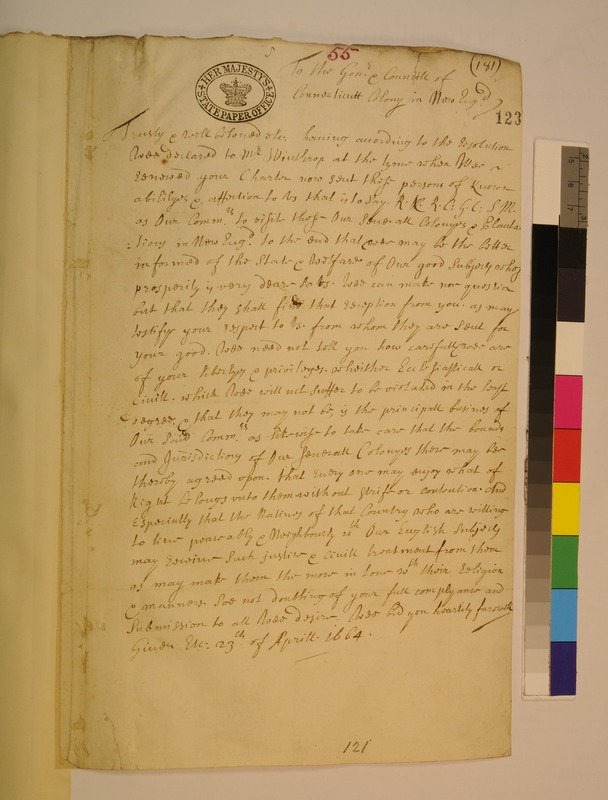 55
(181)
HER MAJESTY'S
STATE PAPER OFFICE
To the Gonr. & Councell of
Connecticutt Colony in New Engd.
123
Trusty & Well beloved etc. having according to the resolution
Wee declared to Mr. Winthrop at the tyme when Wee
renewed your Charter now sent these persons of known
abilityes & affection to Us that is to say. R.N. R.C. G.C. S.M.
as Our Commrs. to visite those Our severall Colonyes & Planta
:tions in New Engd. to the end that wee may be the better
informed of the State & Welfare of Our good Subjects whose
prosperity is very deare to Us. Wee can make noe question
but that they shall find that reception from you. as may
testify your respect to Us from whom they are sent for
your good. Wee need not tell you how carefull wee are
of your libertyes & priviledges. wheither Ecclesiasticall or
Civill. which Wee will not suffer to be violated in the least
degree, & that they may not be, is the principall busines of
Our said Commrs. as likewise to take care that the bounds
and Jurisdictions of Our severall Colonyes there may bee
thereby agreed upon. that every one may enjoy what of
Right belongs unto them without strife or contention. And
especially that the Natives of that Country who are willing
to live peaceably & Neighbourly wth Our English Subjects
may receive such justice & civill treatment from them
as may make them the more in love wth their religion
& manners. Soe not doubting of your full complyance and
submission to all Wee desire, Wee bid you heartily farewell
Given Etc: 23th. of Aprill. 1664.
121